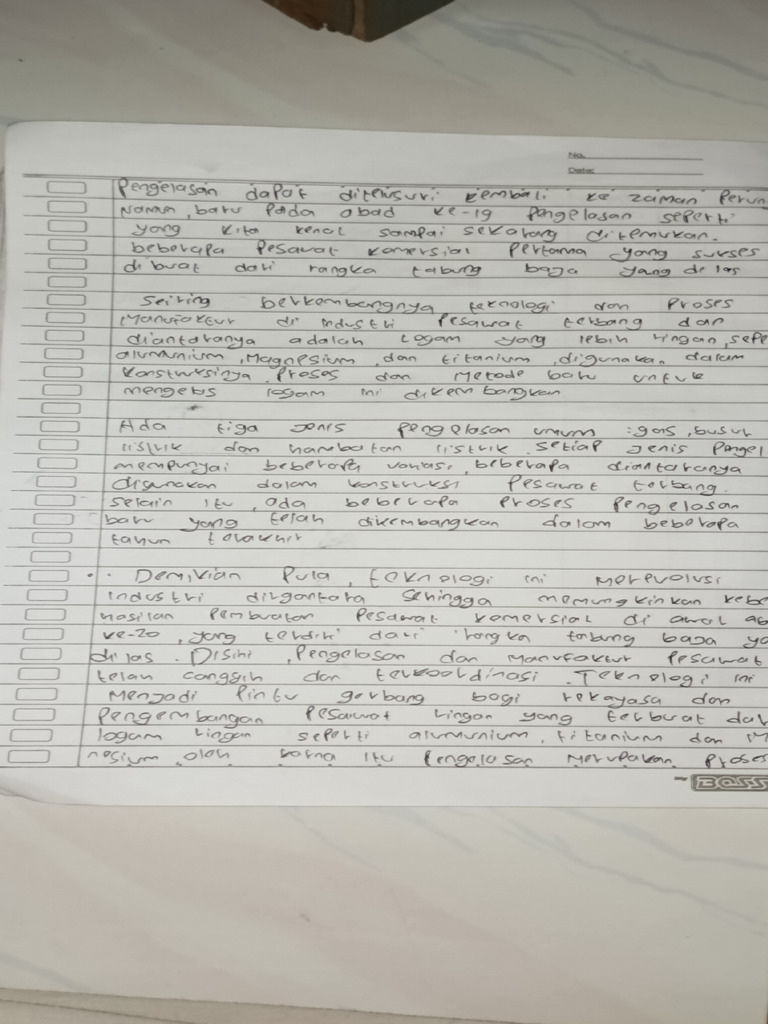 No.
Date:
Pengelasan dapat ditelusuri kembali ke zaman Perun
Namun, baru Pada abad ke-19 Pengelasan seperti
yang kita kenal sampai sekarang ditemukan.
beberapa Pesawat komersial Pertama yang sukses
dibuat dari rangka tabung baja yang di las
Seiring berkembangnya teknologi dan Proses
Manufaktur di industri Pesawat terbang dan
diantaranya adalah Logam yang lebih ringan, sepe
alumunium, Magnesium, dan titanium, digunakan dalam
konstruksinya Proses dan Metode baru untuk
mengelas logam ini dikembangkan
Ada tiga Jenis Pengelasan umum : gas, busur
listrik dan hambatan listrik. setiap Jenis Pengel
mempunyai beberapa variasi, beberapa diantaranya
digunakan dalam konstruksi Pesawat terbang.
selain itu, ada beberapa Proses Pengelasan
baru yang telah dikembangkan dalam beberapa
tahun terakhir
Demikian Pula, teknologi ini Merevolusi
industri dirgantara Sehingga memungkinkan kebe
hasilan Pembuatan Pesawat komersial di awal ab
ke-20, yang terdiri dari rangka tabung baja ya
di las. Disini, Pengelasan dan Manufaktur Pesawat
telah canggih dan terkoordinasi. Teknologi ini
Menjadi Pintu gerbang bagi rekayasa dan
Pengembangan Pesawat ringan yang terbuat dar
logam ringan seperti alumunium, titanium dan M
nesium. oleh karna itu Pengelasan Merupakan Proses
BOSS